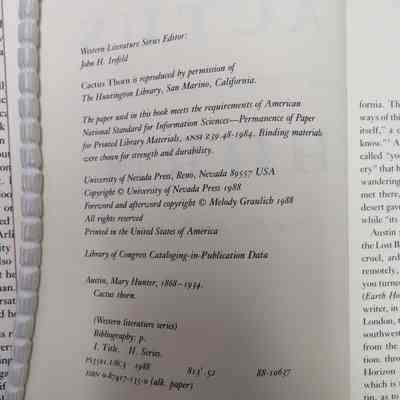 Western Literature Series Editor:
John H. Irsfeld
Cactus Thorn is reproduced by permission of
The Huntington Library, San Marino, California.
The paper used in this book meets the requirements of American
National Standard for Information Sciences—Permanence of Paper
for Printed Library Materials, ANSI Z39.48-1984. Binding materials
were chosen for strength and durability.
University of Nevada Press, Reno, Nevada 89557 USA
Copyright © University of Nevada Press 1988
Foreword and afterword copyright © Melody Graulich 1988
All rights reserved
Printed in the United States of America
Library of Congress Cataloging-in-Publication Data
Austin, Mary Hunter, 1868–1934.
Cactus thorn.
(Western literature series)
Bibliography: p.
I. Title. II. Series.
PS3501.U8C3 1988 813'.52 88-10627
ISBN 0-87417-135-0 (alk. paper)
fornia. Th
ways of this
itself," a c
know."
called "yo
ery" that h
wandering
met there,
desert gave
while "its
Austin
the Lost B
cruel, ard
remotely,
you turne
(Earth Ho
writer, in
London, t
southwest
from the
tion, thro
Horizon
which is
tin, as to